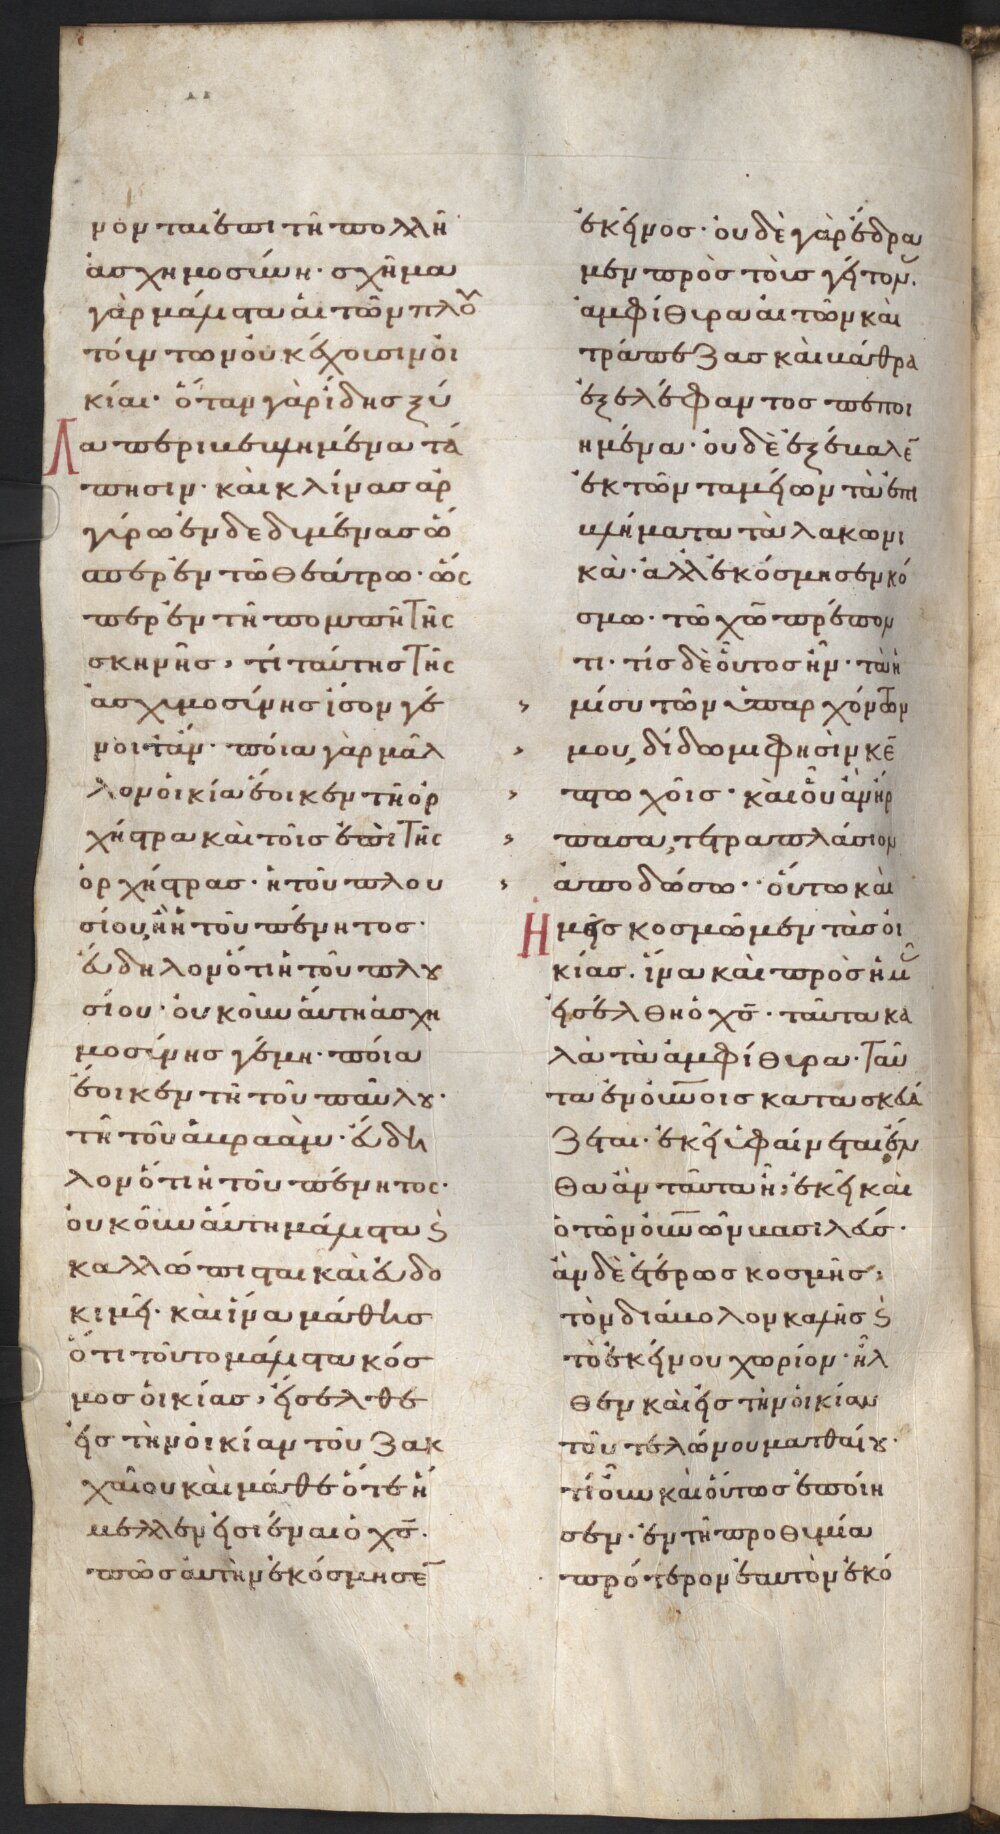 νονται ἐπι τῆ πολλῆ
ἀσχημοσύνη· σχῆμα
γὰρ μάλιστα αἱ τῶν πλου
τούντων οὐκ ἔχουσιν οἰ
κίαι· ὅταν γὰρ ἴδης ξύ
λα περικειμένα τά
πησιν· καὶ κλίνας ἀρ
γύρω ἐνδεδιμένας ὥ
σπερ ἐν τῶ θεάτρω· ὥς
περ ἐν τῆ πομπῆ τῆς
σκηνῆς, τί ταύτης τῆς
ἀσχιμοσύνης ἴσον γέ
νοιτ ἄν· ποία γὰρ μᾶλ
λον οἰκία ἔοικεν τῆ ὀρ
χήστρα καὶ τοῖς ἐπὶ τῆς
ὀρχήστρας· ἡ τοῦ πλου
σίου, ἢ ἡ τοῦ πένητος·
εὔδηλον ὅτι ἡ τοῦ πλου
σίου· οὐκοῦν αὕτη ἀσχη
μοσύνης γέμη· ποία
ἔοικεν τῆ τοῦ παύλου·
τῆ τοῦ ἀβραάμ· εὔδη
λον ὅτι ἡ τοῦ πένητος·
οὐκοῦν αὕτη μάλιστα κ
καλλώπισται καὶ εὐδο
κιμεῖ· καὶ ἵνα μάθης
ὅτι τοῦτο μάλιστα κόσ
μος οἰκίας, εἴσελθε
εἰς τὴν οἰκίαν τοῦ Ζακ
χαίου καὶ μάθε ὅτε ἤ
μελλεν εἰσιέναι ὁ χς·
πῶς αὐτὴν ἐκόσμησεν
ἐκεῖνος· οὐδὲ γὰρ ἔδρα
μεν πρὸς τοὺς γείτον·
ἀμφίθυρα αἰτῶν καὶ
τράπεζας καὶ βάθρα
ἐξ ἐλέφαντος πεποι
ημένα· οὐδὲ ἐξέβαλεν
ἐκ τῶν ταμείων τὰ ἐπι
βλήματα τὰ λακωνι
κὰ· ἀλλ' ἐκόσμησεν κό
σμω· τῶ χῶ πρέπον
τι· τίς δὲ οὗτος ἦν· τὰ ἡ
μίσυ τῶν ὑπαρχόντων
μου, δίδωμι φησὶν κε
πτωχοῖς· καὶ οὗ ἂν ἥρ
πασα, τετραπλάσιον
ἀποδώσω· οὕτω καὶ
Ἡμεῖς κοσμῶμεν τὰς οἰ
κίας· ἵνα καὶ πρὸς ἡμ
εἰσέλθη ὁ χς· ταῦτα κα
λὰ τὰ ἀμφίθυρα· ταῦ
τα ἐν οὐνοις κατασκευά
ζεται· ἐκεῖ ὑφαίνεται ἔν
θα ἂν ταῦτα ἦ· ἐκεῖ καὶ
ὁ τῶν οὐνῶν βασιλεύς·
ἂν δὲ ἑτέρως κοσμῆς·
τὸν διάβολον καλῆς κ
τὸ ἐκείνου χωρίον· ἦλ
θεν καὶ εἰς τὴν οἰκίαν
τοῦ τελώνου ματθαίου·
τί οὖν καὶ οὕτως ἐποίη
σεν· ἐν τῆ προθυμία
πρότερον ἑαυτὸν ἐκό